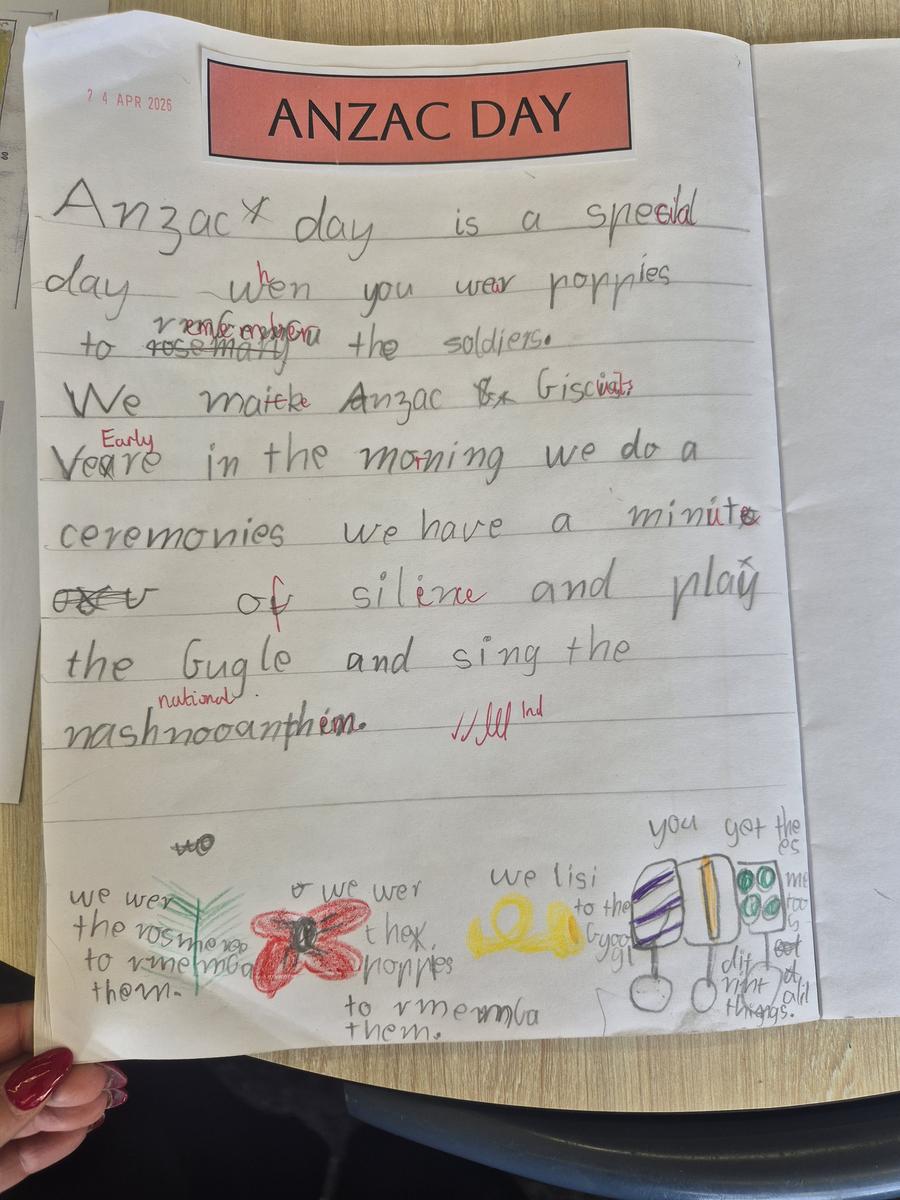 24 APR 2026
ANZAC DAY
Anzac day is a special
day when you wear poppies
remember
to rosemary the soldiers.
We make Anzac biscuits
Early
Veare in the morning we do a
ceremonies we have a minute
of silence and play
the bugle and sing the
national
nashnooanthem.
Ind
you get the
es
me
we wer
the rosmeree
to rmemga
them.
we wer
the
poppes
to rmemga
them.
we lisi
to the
dif
rint
things.